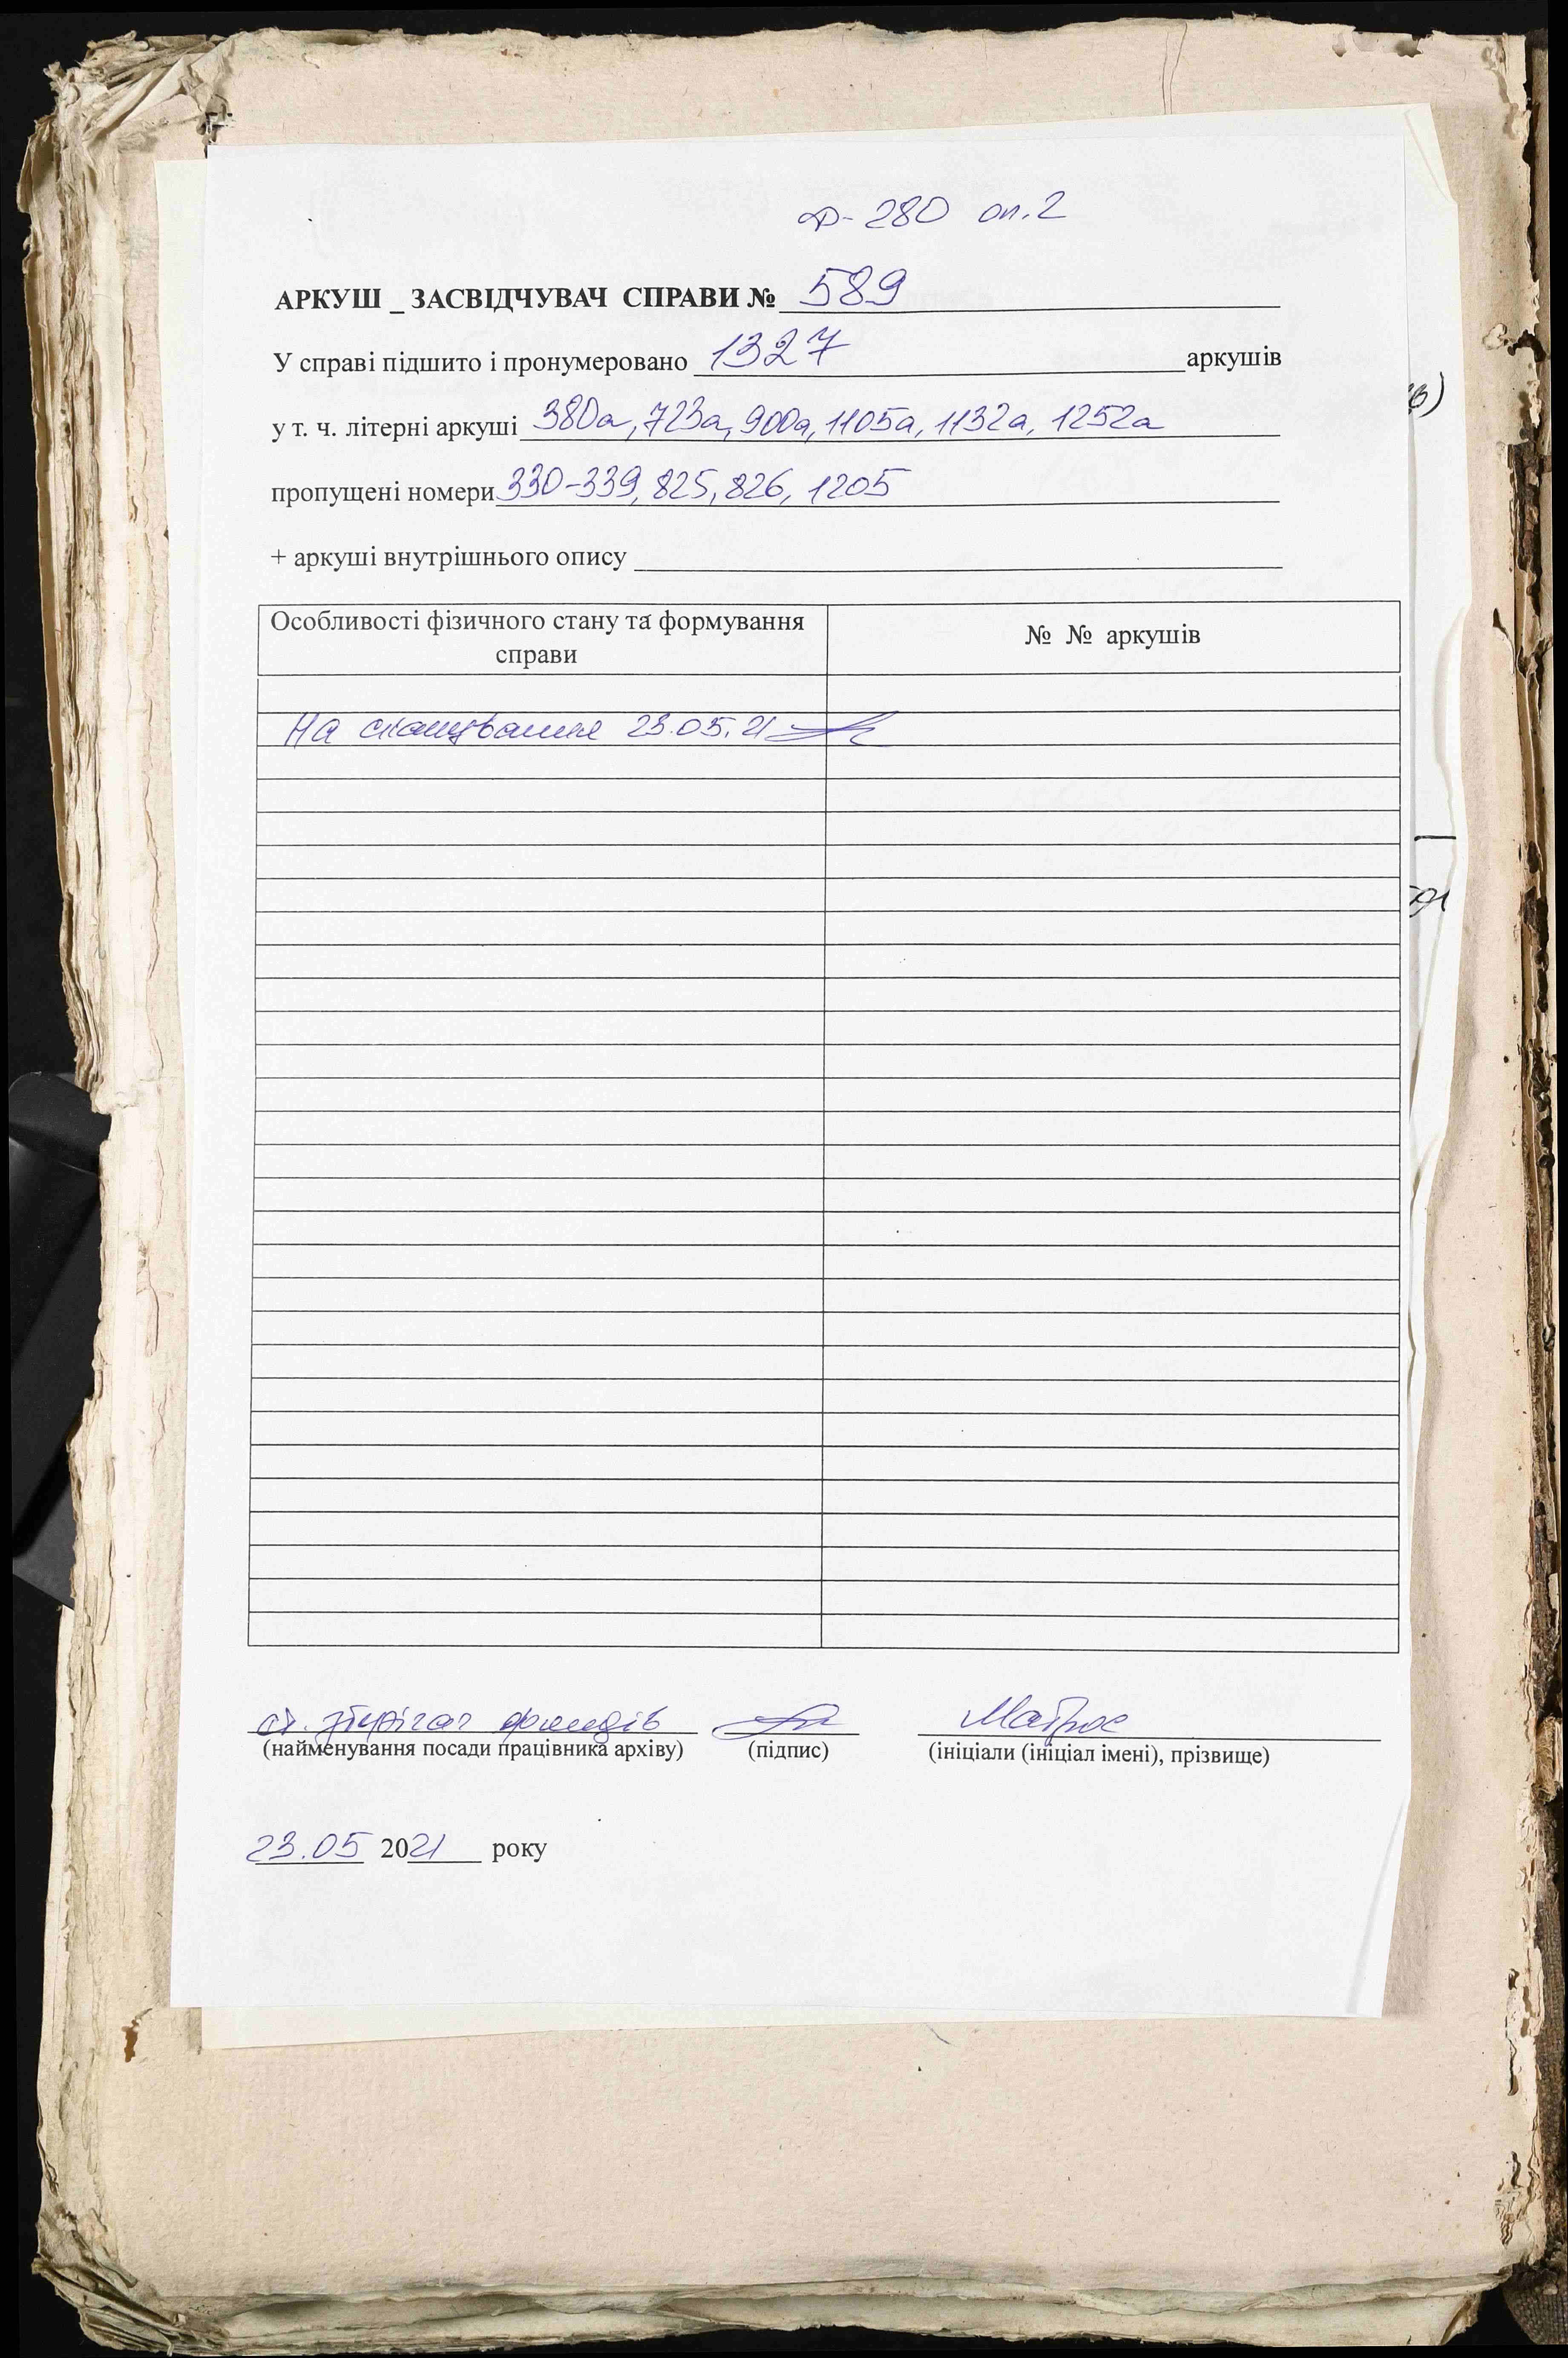 ф-280 оп.2
АРКУШ _ ЗАСВІДЧУВАЧ СПРАВИ № 589
У справі підшито і пронумеровано 1327 аркушів
у т. ч. літерні аркуші 380а, 723а, 900а, 1105а, 1132а, 1252а
пропущені номери 330-339, 825, 826, 1205
+ аркуші внутрішнього опису
Особливості фізичного стану та формування справи
№ № аркушів
На сканування 23.05.21
ст. зберігач фондів Матрос
(найменування посади працівника архіву) (підпис) (ініціали (ініціал імені), прізвище)
23.05 2021 року